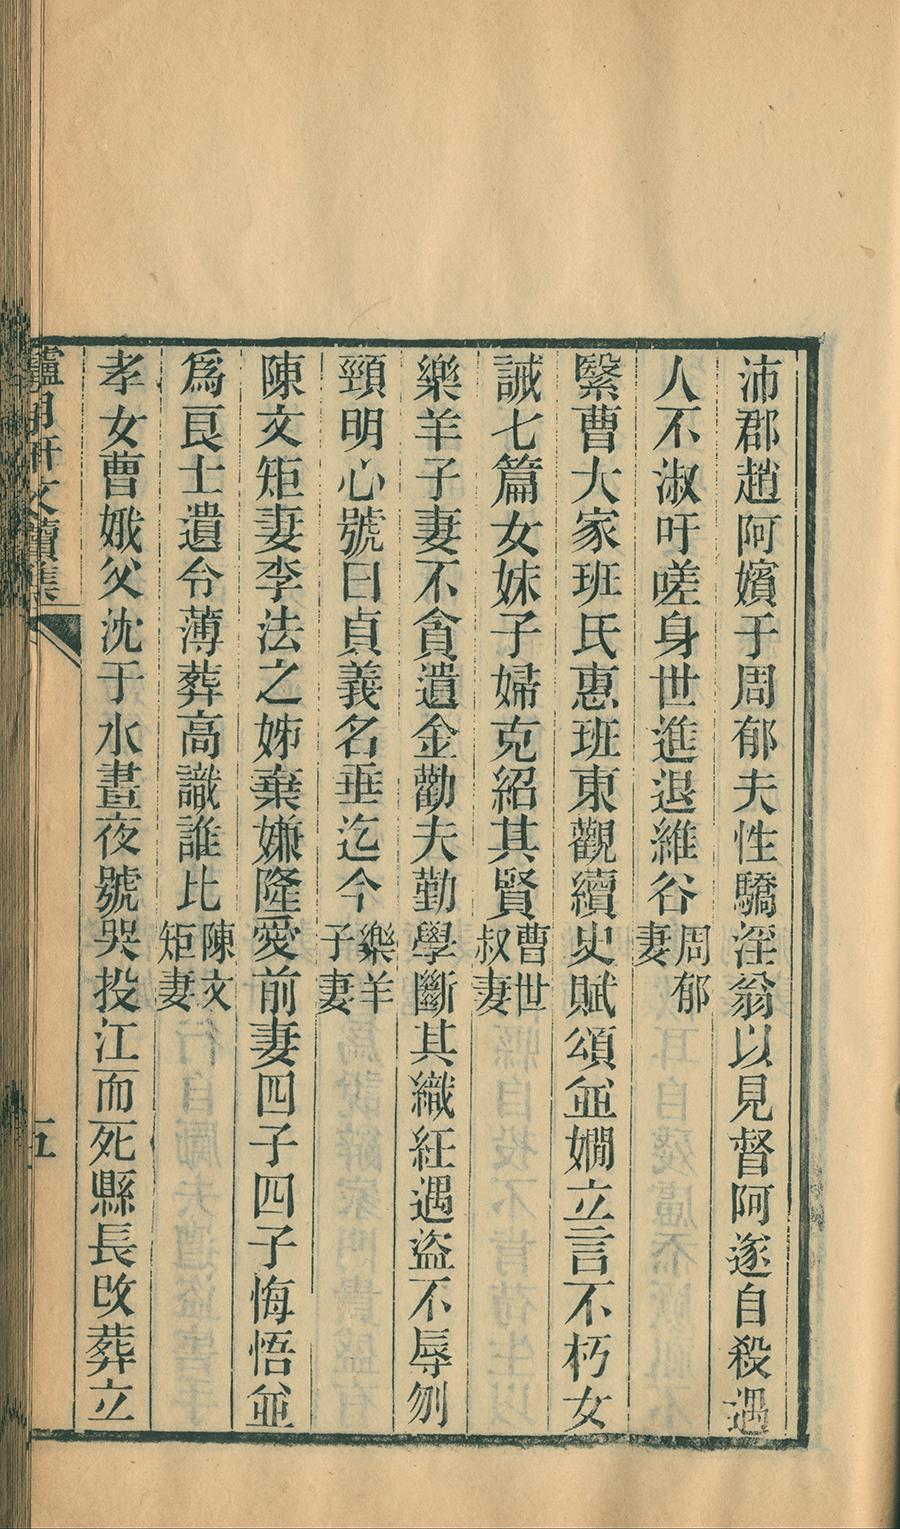 沛郡趙阿嬪于周郁夫性驕淫翁以見督阿遂自殺遇
人不淑吁嗟身世進退維谷周郁妻
繄曹大家班氏惠班東觀續史賦頌並嫺立言不朽女
誡七篇女妹子婦克紹其賢曹世叔妻
樂羊子妻不貪遺金勸夫勤學斷其織紝遇盜不辱刎
頸明心號曰貞義名垂迄今樂羊子妻
陳文矩妻李法之姊棄嫌隆愛前妻四子四子悔悟並
爲良士遺令薄葬高識誰比陳文矩妻
孝女曹娥父沈于水晝夜號哭投江而死縣長改葬立
文續集
五